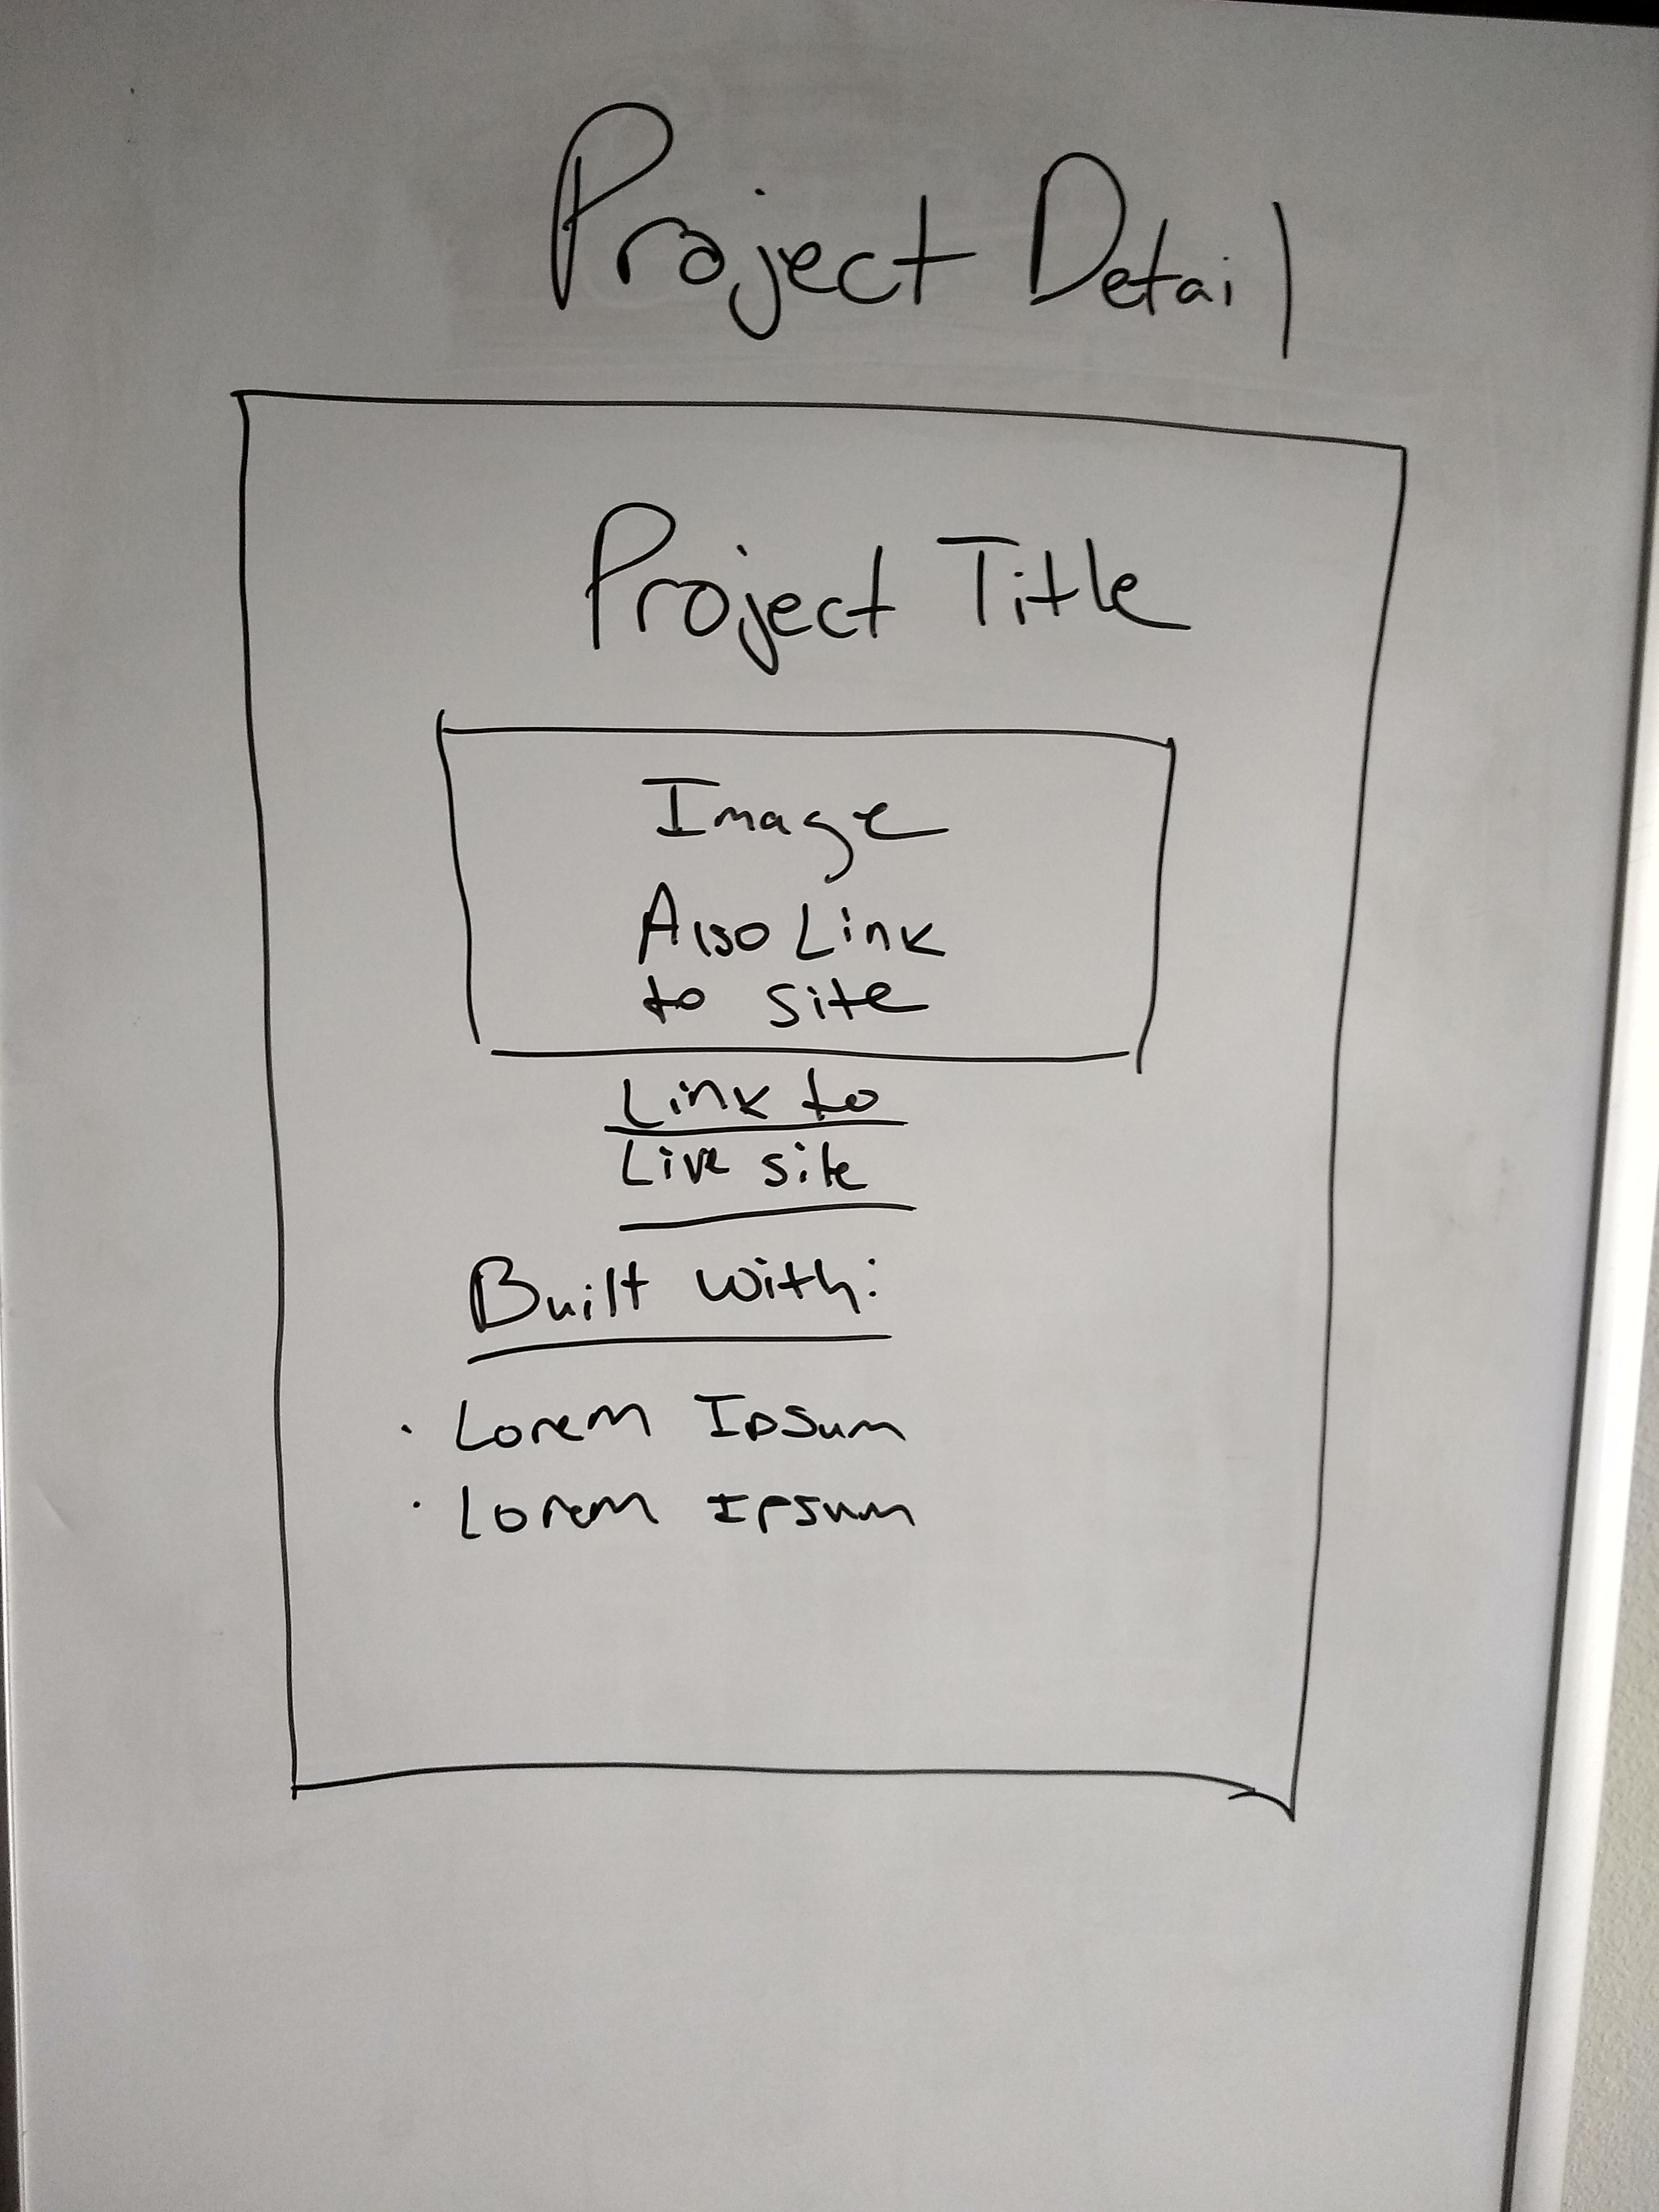 Project Detail
Project Title
Image
Also Link
to site
Link to
Live site
Built with:
· Lorem Ipsum
· Lorem Ipsum